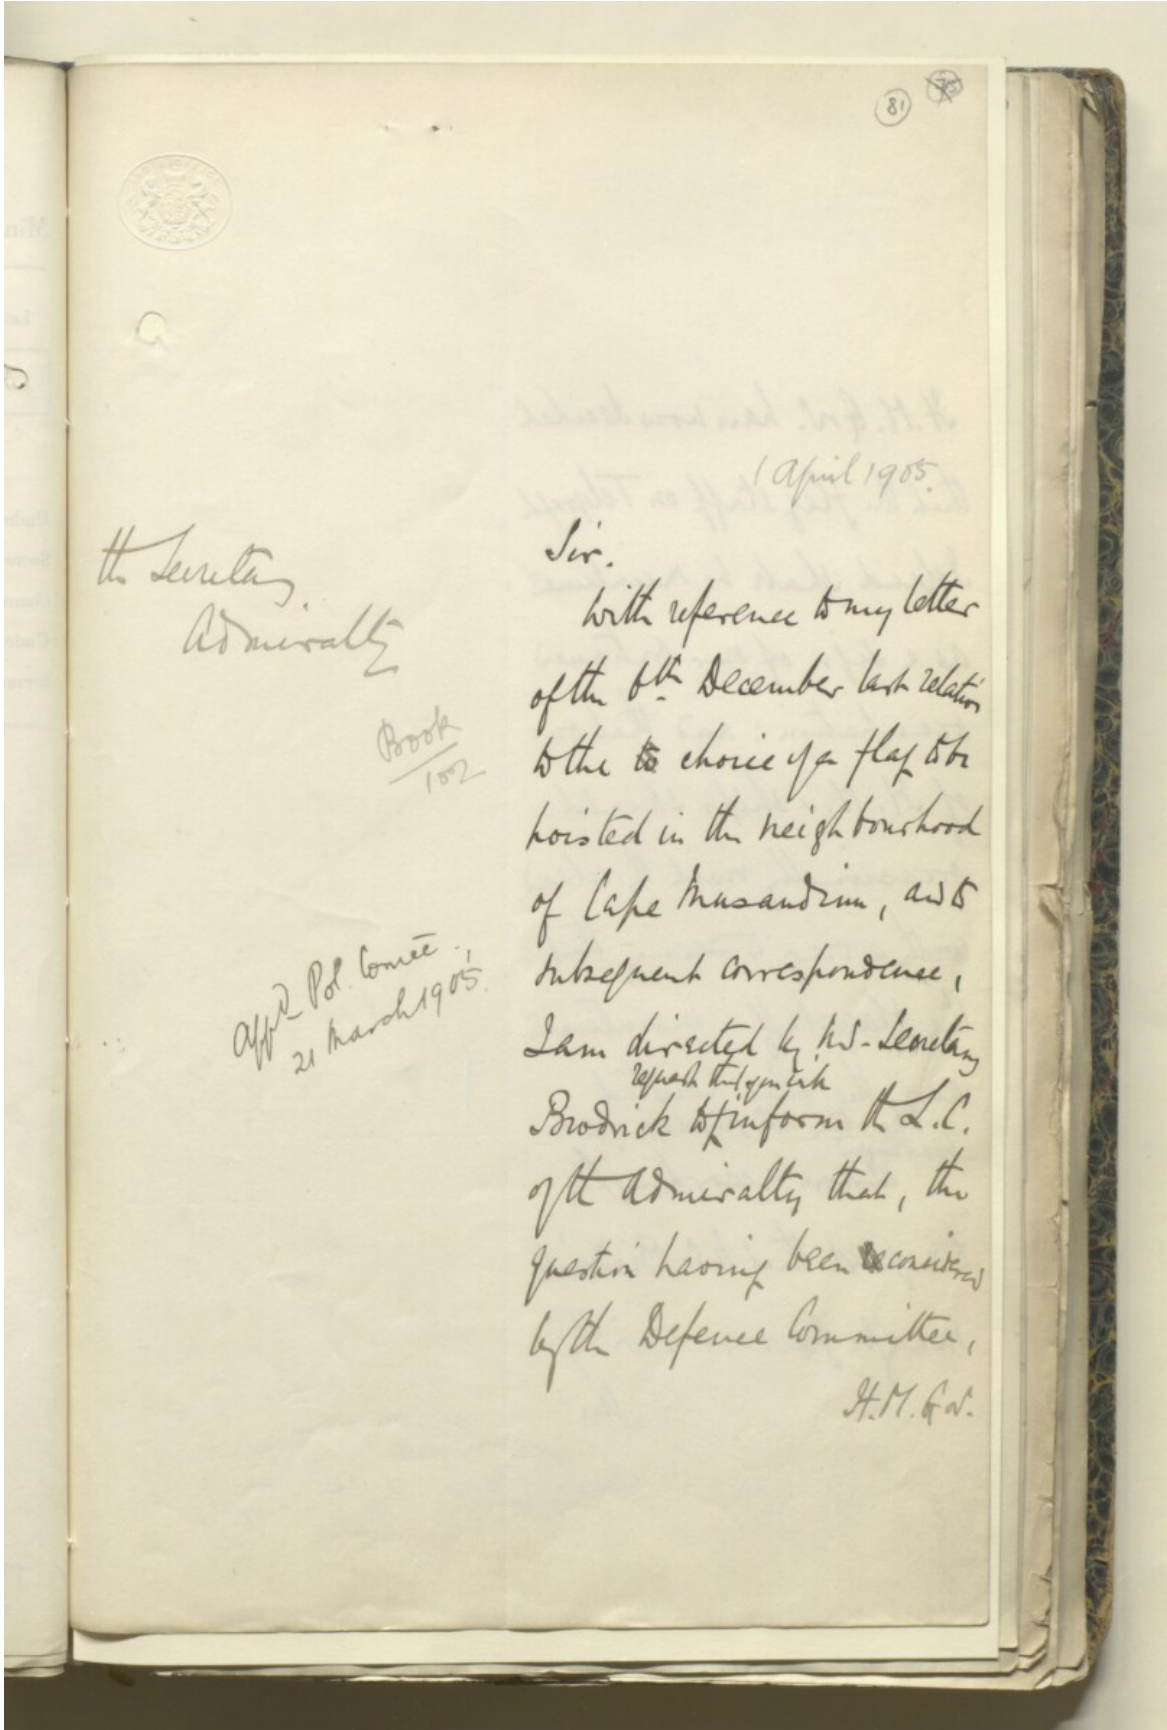 81
1 April 1905.
The Secretary
Admiralty
Book
102
Appd. Pol. Comtee.,
21 March 1905.
Sir.
With reference to my letter
of the 6th December last relation
to the to choice of a flag to be
hoisted in the neighbourhood
of Cape Musandim, and to
subsequent correspondence,
I am directed by Mr. Secretary
request that you will
Brodrick to inform the L.C.
of the Admiralty that, the
question having been reconsidered
by the Defence Committee,
H.M. Gov.